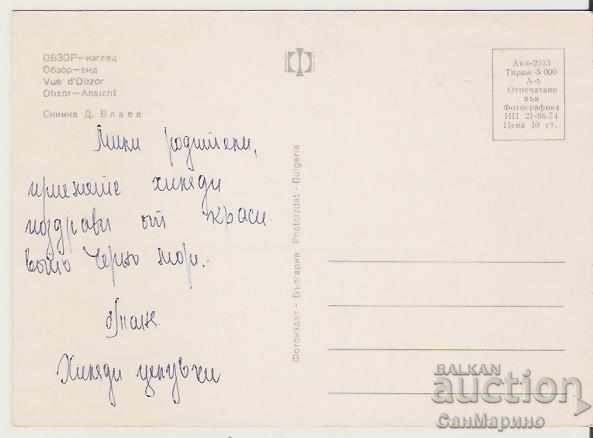 ОБЗОР—изглед
Обзор—вид
Vue d'Obzor
Obzor—Ansicht
Снимка Д. Влаев
Мили родители,
приемете хиляди
поздрави от краси
вото Черно море.
Хиляди целувки
Фотоиздат - България Photoizdat - Bulgaria
Акл-2013
Тираж 5 000
А-6
Отпечатано
във
Фотографика
ИП 21-06-74
Цена 10 ст.
BALKAN
auction
СанМарино